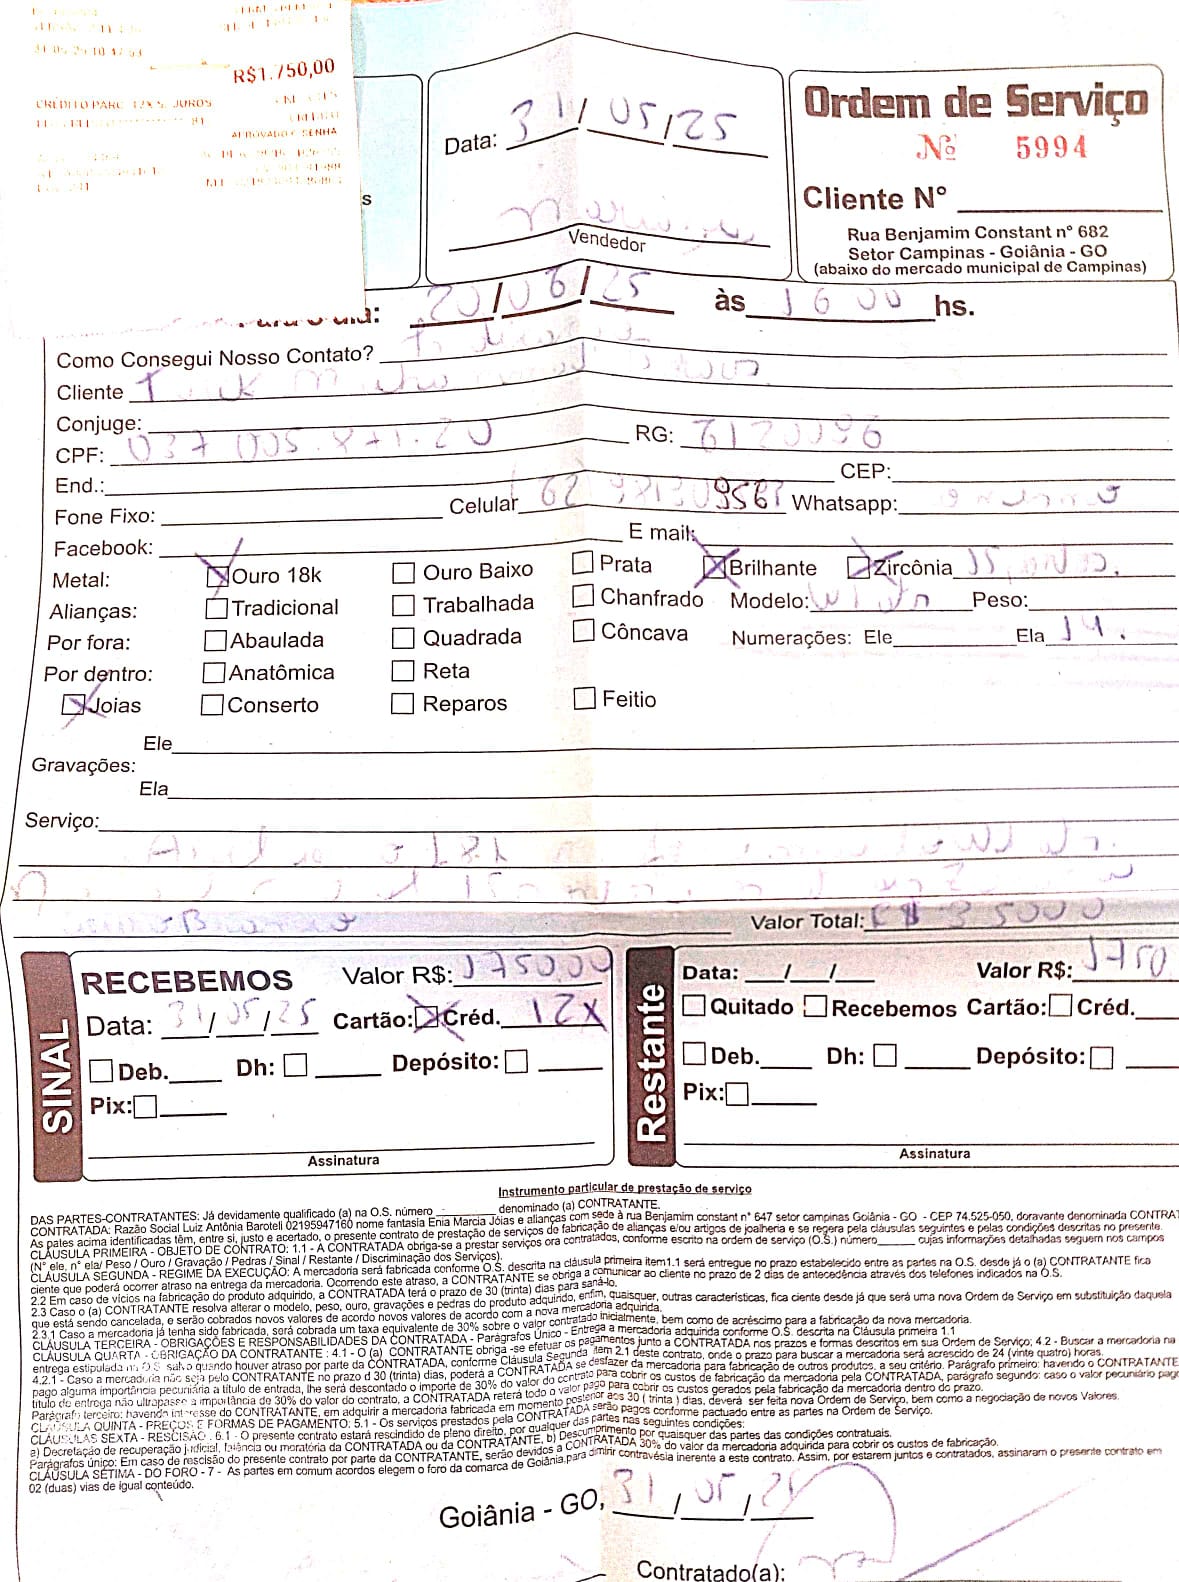 R$1.750,00
CRÉDITO PARC. 12X S. JUROS
APROVADO C SENHA
Data: 31/05/25
Vendedor
Ordem de Serviço
Nº 5994
Cliente N°
Rua Benjamim Constant n° 682
Setor Campinas - Goiânia - GO
(abaixo do mercado municipal de Campinas)
20/06/25 às 16 00 hs.
Como Consegui Nosso Contato?
Cliente
Conjuge:
CPF: 037 005. 871. 20 RG: 6120096
End.: CEP:
Fone Fixo: Celular Whatsapp:
Facebook: E mail:
Metal: Ouro 18k Ouro Baixo Prata Brilhante Zircônia
Alianças: Tradicional Trabalhada Chanfrado Modelo: Peso:
Por fora: Abaulada Quadrada Côncava Numerações: Ele Ela 14.
Por dentro: Anatômica Reta
Joias Conserto Reparos Feitio
Ele
Gravações:
Ela
Serviço:
Valor Total: R$ 3 5000
SINAL
RECEBEMOS Valor R$: 1750,00
Data: 31/05/25 Cartão: Créd. 12X
Deb. Dh: Depósito:
Pix:
Assinatura
Restante
Data: / / Valor R$: 1750
Quitado Recebemos Cartão: Créd.
Deb. Dh: Depósito:
Pix:
Assinatura
Instrumento particular de prestação de serviço
DAS PARTES-CONTRATANTES: Já devidamente qualificado (a) na O.S. número denominado (a) CONTRATANTE.
CONTRATADA: Razão Social Luiz Antônia Baroteli 02195947160 nome fantasia Enia Marcia Jóias e alianças com sede à rua Benjamim constant n° 647 setor campinas Goiânia - GO - CEP 74.525-050, doravante denominada CONTRAT
As pates acima identificadas têm, entre si, justo e acertado, o presente contrato de prestação de serviços de fabricação de alianças e/ou artigos de joalheria e se regera pela cláusulas seguintes e pelas condições descritas no presente.
CLÁUSULA PRIMEIRA - OBJETO DE CONTRATO: 1.1 - A CONTRATADA obriga-se a prestar serviços ora contratados, conforme escrito na ordem de serviço (O.S.) número cujas informações detalhadas seguem nos campos
(N° ele, n° ela/ Peso / Ouro / Gravação / Pedras / Sinal / Restante / Discriminação dos Serviços).
CLÁUSULA SEGUNDA - REGIME DA EXECUÇÃO: A mercadoria será fabricada conforme O.S. descrita na cláusula primeira item1.1 será entregue no prazo estabelecido entre as partes na O.S. desde já o (a) CONTRATANTE fica
ciente que poderá ocorrer atraso na entrega da mercadoria. Ocorrendo este atraso, a CONTRATANTE se obriga a comunicar ao cliente no prazo de 2 dias de antecedência através dos telefones indicados na O.S.
2.2 Em caso de vícios na fabricação do produto adquirido, a CONTRATADA terá o prazo de 30 (trinta) dias para saná-lo.
2.3 Caso o (a) CONTRATANTE resolva alterar o modelo, peso, ouro, gravações e pedras do produto adquirido, enfim, quaisquer, outras características, fica ciente desde já que será uma nova Ordem de Serviço em substituição daquela
que está sendo cancelada, e serão cobrados novos valores de acordo novos valores de acordo com a nova mercadoria adquirida.
2.3.1 Caso a mercadoria já tenha sido fabricada, será cobrada um taxa equivalente de 30% sobre o valor contratado inicialmente, bem como de acréscimo para a fabricação da nova mercadoria.
CLÁUSULA TERCEIRA - OBRIGAÇÕES E RESPONSABILIDADES DA CONTRATADA - Parágrafos Único - Entrega a mercadoria adquirida conforme O.S. descrita na Cláusula primeira 1.1
CLÁUSULA QUARTA - OBRIGAÇÃO DA CONTRATANTE : 4.1 - O (a) CONTRATANTE obriga -se efetuar os pagamentos junto a CONTRATADA nos prazos e formas descritos em sua Ordem de Serviço; 4.2 - Buscar a mercadoria na
entrega estipulada na O.S. salvo quando houver atraso por parte da CONTRATADA, conforme Cláusula Segunda item 2.1 deste contrato, onde o prazo para buscar a mercadoria será acrescido de 24 (vinte quatro) horas.
4.2.1 - Caso a mercadoria não seja pelo CONTRATANTE no prazo d 30 (trinta) dias, poderá a CONTRATADA se desfazer da mercadoria para fabricação de outros produtos, a seu critério. Parágrafo primeiro: havendo o CONTRATANTE
pago alguma importância pecuniária a título de entrada, lhe será descontado o importe de 30% do valor do contrato para cobrir os custos de fabricação da mercadoria pela CONTRATADA, parágrafo segundo: caso o valor pecuniário pago
título de entrega não ultrapasse a importância de 30% do valor do contrato, a CONTRATADA reterá todo o valor pago para cobrir os custos gerados pela fabricação da mercadoria dentro do prazo.
Parágrafo terceiro: havendo interesse do CONTRATANTE, em adquirir a mercadoria fabricada em momento posterior aos 30 ( trinta ) dias, deverá ser feita nova Ordem de Serviço, bem como a negociação de novos Valores.
CLÁUSULA QUINTA - PREÇOS E FORMAS DE PAGAMENTO: 5.1 - Os serviços prestados pela CONTRATADA serão pagos conforme pactuado entre as partes na Ordem de Serviço.
CLÁUSULAS SEXTA - RESCISÃO . 6.1 - O presente contrato estará rescindido de pleno direito, por qualquer das partes nas seguintes condições:
a) Decretação de recuperação judicial, falência ou moratória da CONTRATADA ou da CONTRATANTE, b) Descumprimento por quaisquer das partes das condições contratuais.
Parágrafos único: Em caso de rescisão do presente contrato por parte da CONTRATANTE, serão devidos a CONTRATADA 30% do valor da mercadoria adquirida para cobrir os custos de fabricação.
CLÁUSULA SÉTIMA - DO FORO - 7 - As partes em comum acordos elegem o foro da comarca de Goiânia,para dimirir contravésia inerente a este contrato. Assim, por estarem juntos e contratados, assinaram o presente contrato em
02 (duas) vias de igual conteúdo.
Goiânia - GO, 31/05/25
Contratado(a):